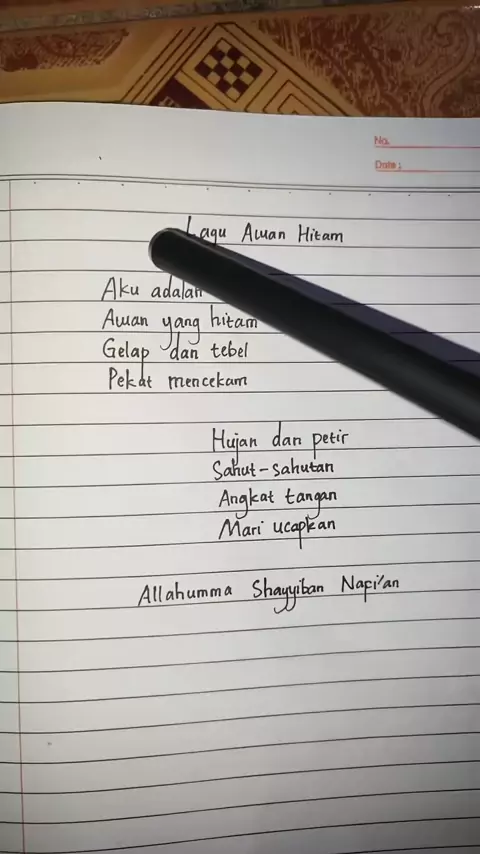 No.
Date :
Lagu Awan Hitam
Aku adalah
Awan yang hitam
Gelap dan tebel
Pekat mencekam
Hujan dan petir
Sahut-sahutan
Angkat tangan
Mari ucapkan
Allahumma Shayyiban Nafi'an